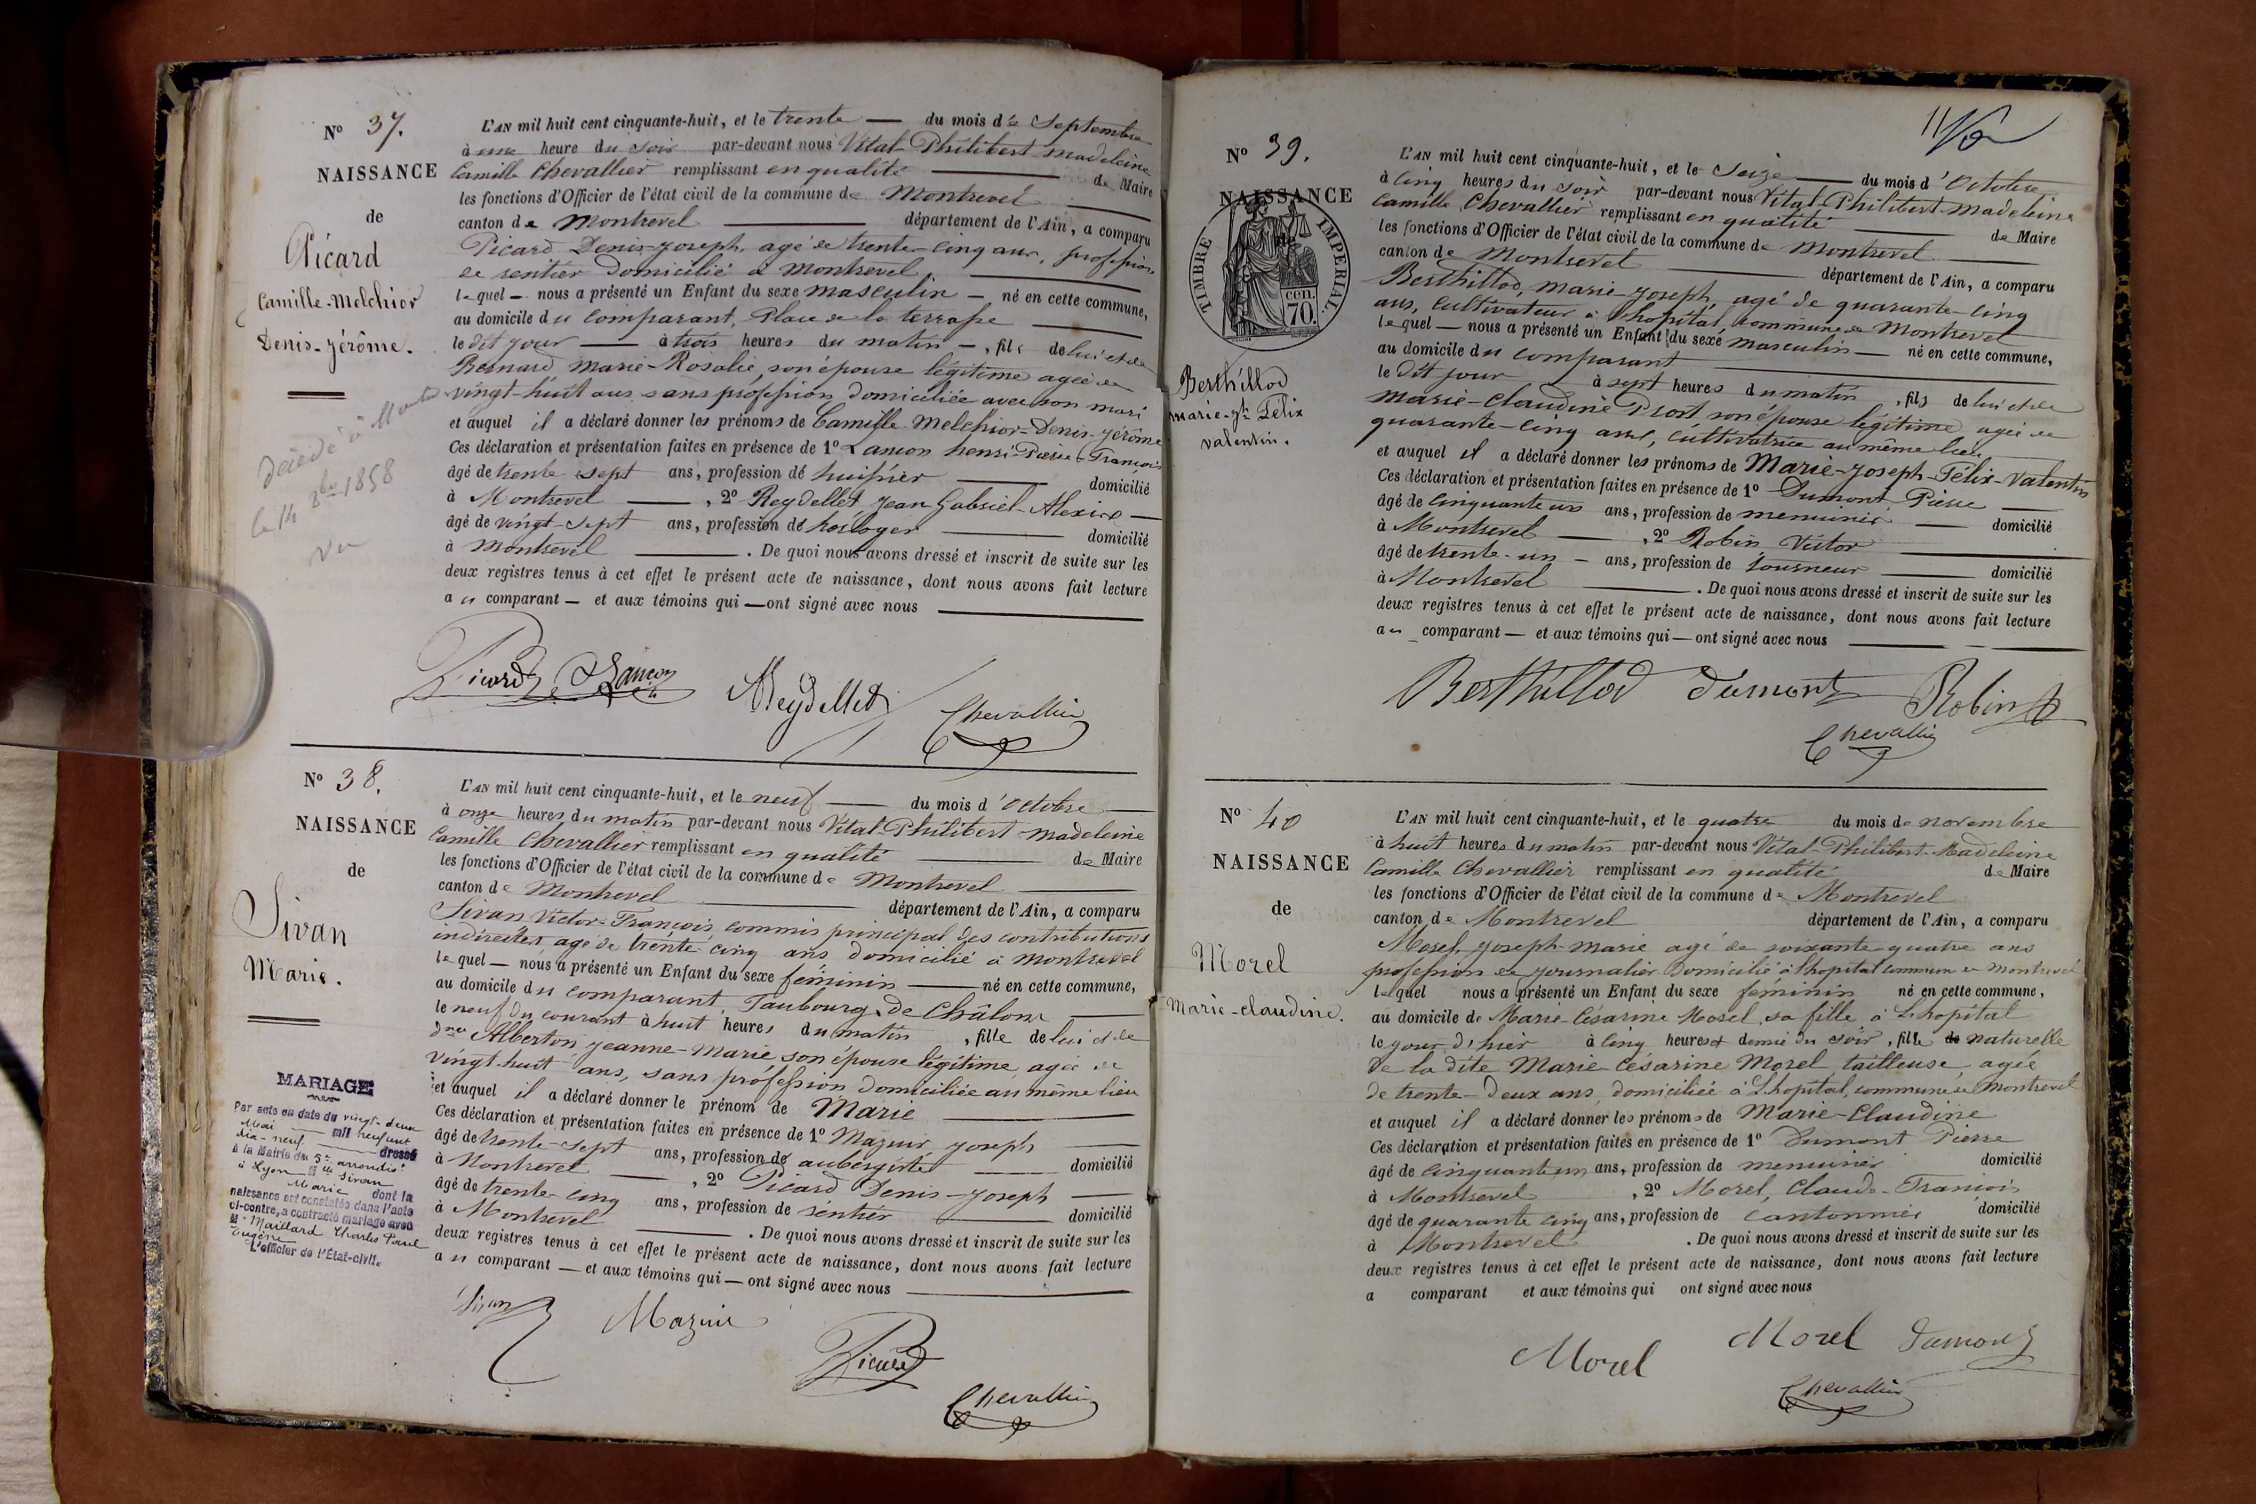 N.º 37.
NAISSANCE
de
Picard
Camille-Melchior
Denis-Jérôme.
décédé à
le 14 8bre 1858
Vu
L'AN mil huit cent cinquante-huit, et le trente — du mois de Septembre
à une heure du soir par-devant nous Vital-Philibert-Madeleine
Camille Chevallier remplissant en qualité — de Maire
les fonctions d'Officier de l'état civil de la commune de Montrevel —
canton de Montrevel — département de l'Ain, a comparu
Picard Denis-Joseph, agé de trente-cinq ans, profession
de rentier domicilié à Montrevel —
lequel — nous a présenté un Enfant du sexe masculin — né en cette commune,
au domicile du comparant, Place de la terrasse —
le dit jour — à trois heures du matin —, fils de lui et de
Bernard Marie-Rosalie, son épouse légitime agée de
vingt-huit ans sans profession domiciliée avec son mari
et auquel il a déclaré donner les prénoms de Camille-Melchior-Denis-Jérôme
Ces déclaration et présentation faites en présence de 1º Lançon henri-Pierre-François
âgé de trente-sept ans, profession de huissier — domicilié
à Montrevel —, 2º Reydellet Jean Gabriel-Alexis —
âgé de vingt-sept ans, profession de horloger — domicilié
à Montrevel — . De quoi nous avons dressé et inscrit de suite sur les
deux registres tenus à cet effet le présent acte de naissance, dont nous avons fait lecture
au comparant — et aux témoins qui — ont signé avec nous —
Picard Lançon Reydellet Chevallier
N.º 38.
NAISSANCE
de
Sivan
Marie.
MARIAGE
Par acte en date du vingt-deux
Mai — mil neuf cent
dix-neuf — dressé
à la Mairie du 5e arrondist
à Lyon Mlle Sivan
Marie dont la
naissance est constatée dans l'acte
ci-contre, a contracté mariage avec
M. Maillard Charles Paul
Eugène
L'officier de l'État-civil.
L'AN mil huit cent cinquante-huit, et le neuf — du mois d'octobre —
à onze heures du matin par-devant nous Vital-Philibert-Madeleine
Camille Chevallier remplissant en qualité — de Maire
les fonctions d'Officier de l'état civil de la commune de Montrevel —
canton de Montrevel — département de l'Ain, a comparu
Sivan Victor-François, commis principal des contributions
indirectes, agé de trente-cinq ans domicilié à Montrevel
lequel — nous a présenté un Enfant du sexe féminin — né en cette commune,
au domicile du comparant, Faubourg de Châlons —
le neuf du courant à huit heures du matin, fille de lui et de
dme Alberton Jeanne-Marie son épouse légitime, agée de
vingt-huit ans, sans profession domiciliée au même lieu
et auquel il a déclaré donner le prénom de Marie —
Ces déclaration et présentation faites en présence de 1º Mazuir Joseph —
âgé de trente-sept ans, profession de aubergiste — domicilié
à Montrevel —, 2º Picard Denis-Joseph —
âgé de trente-cinq ans, profession de rentier — domicilié
à Montrevel — . De quoi nous avons dressé et inscrit de suite sur les
deux registres tenus à cet effet le présent acte de naissance, dont nous avons fait lecture
au comparant — et aux témoins qui — ont signé avec nous —
Sivan Mazuir Picard Chevallier
11
N.º 39.
NAISSANCE
de
TIMBRE IMPERIAL.
CEN.
70.
Berthillod
Marie-Jh Félix
Valentin.
L'AN mil huit cent cinquante-huit, et le seize — du mois d'Octobre
à cinq heures du soir par-devant nous Vital-Philibert-Madeleine
Camille Chevallier remplissant en qualité — de Maire
les fonctions d'Officier de l'état civil de la commune de Montrevel —
canton de Montrevel — département de l'Ain, a comparu
Berthillod, Marie-Joseph, agé de quarante-cinq
ans, cultivateur à l'hopital, commune de Montrevel
lequel — nous a présenté un Enfant du sexe masculin — né en cette commune,
au domicile du comparant —
le dit jour à sept heures du matin, fils de lui et de
Marie-Claudine Prost son épouse légitime agée de
quarante-cinq ans, cultivatrice au même lieu
et auquel il a déclaré donner les prénoms de Marie-Joseph-Félix-Valentin
Ces déclaration et présentation faites en présence de 1º Dumont Pierre —
âgé de cinquante un ans, profession de menuisier — domicilié
à Montrevel —, 2º Robin Victor —
âgé de trente-un — ans, profession de tourneur — domicilié
à Montrevel — . De quoi nous avons dressé et inscrit de suite sur les
deux registres tenus à cet effet le présent acte de naissance, dont nous avons fait lecture
au comparant — et aux témoins qui — ont signé avec nous —
Berthillod Dumont Robin
Chevallier
N.º 40
NAISSANCE
de
Morel
Marie-Claudine.
L'AN mil huit cent cinquante-huit, et le quatre du mois de novembre
à huit heures du matin par-devant nous Vital-Philibert-Madeleine
Camille Chevallier remplissant en qualité de Maire
les fonctions d'Officier de l'état civil de la commune de Montrevel
canton de Montrevel département de l'Ain, a comparu
Morel, Joseph-Marie agé de soixante-quatre ans
profession de journalier domicilié à l'hopital commune de Montrevel
lequel nous a présenté un Enfant du sexe féminin né en cette commune,
au domicile de Marie-Césarine Morel, sa fille à L'hopital
le jour d'hier à cinq heures et demie du soir, fille de naturelle
de la dite Marie-Césarine Morel tailleuse, agée
de trente-deux ans, domiciliée à L'hopital, commune de Montrevel
et auquel il a déclaré donner les prénoms de Marie-Claudine
Ces déclaration et présentation faites en présence de 1º Dumont Pierre
âgé de cinquante un ans, profession de menuisier domicilié
à Montrevel, 2º Morel, Claude-François
âgé de quarante cinq ans, profession de cantonnier domicilié
à Montrevel . De quoi nous avons dressé et inscrit de suite sur les
deux registres tenus à cet effet le présent acte de naissance, dont nous avons fait lecture
a comparant et aux témoins qui ont signé avec nous
Morel Morel Dumont
Chevallier